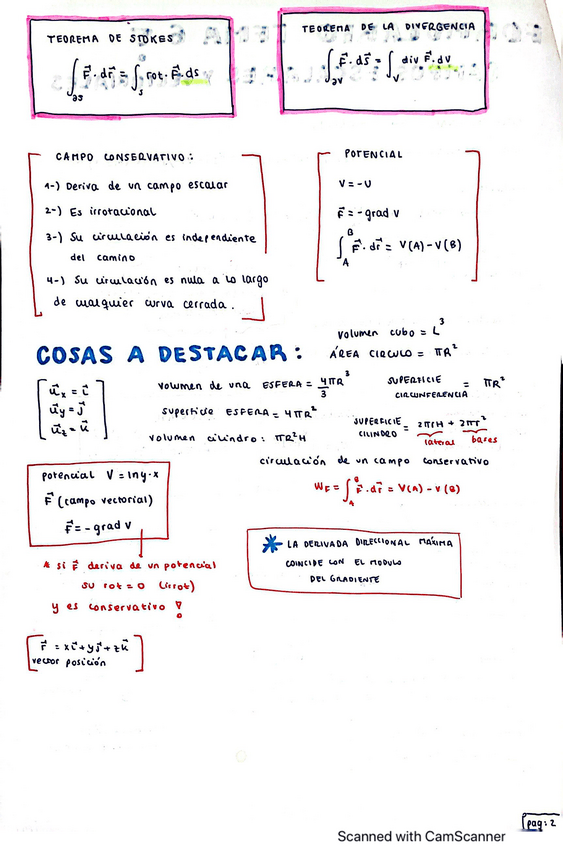 TEOREMA DE STOKES
∫∂S F⃗·dr⃗ = ∫S rot·F⃗·ds
TEOREMA DE LA DIVERGENCIA
∫∂V F⃗·ds⃗ = ∫V div F⃗·dv
CAMPO CONSERVATIVO:
1-) Deriva de un campo escalar
2-) Es irrotacional
3-) Su circulación es independiente
del camino
4-) Su circulación es nula a lo largo
de cualquier curva cerrada.
POTENCIAL
V = -U
F⃗ = -grad V
∫A^B F⃗·dr⃗ = V(A) - V(B)
COSAS A DESTACAR:
volumen cubo = L³
ÁREA CIRCULO = πR²
u⃗x = i⃗
u⃗y = j⃗
u⃗z = k⃗
volumen de una ESFERA = 4πR³/3
SUPERFICIE CIRCUNFERENCIA = πR²
superficie ESFERA = 4πR²
SUPERFICIE CILINDRO = 2πrH + 2πr²
lateral bases
volumen cilindro: πR²H
circulación de un campo conservativo
WF = ∫A^B F⃗·dr⃗ = V(A) - V(B)
potencial V = lny·x
F⃗ (campo vectorial)
F⃗ = -grad V
* si F⃗ deriva de un potencial
su rot = 0 (irrot)
y es conservativo!
* LA DERIVADA DIRECCIONAL MÁXIMA
COINCIDE CON EL MODULO
DEL GRADIENTE
r⃗ = xi⃗ + yj⃗ + zk⃗
vector posición
pag: 2
Scanned with CamScanner